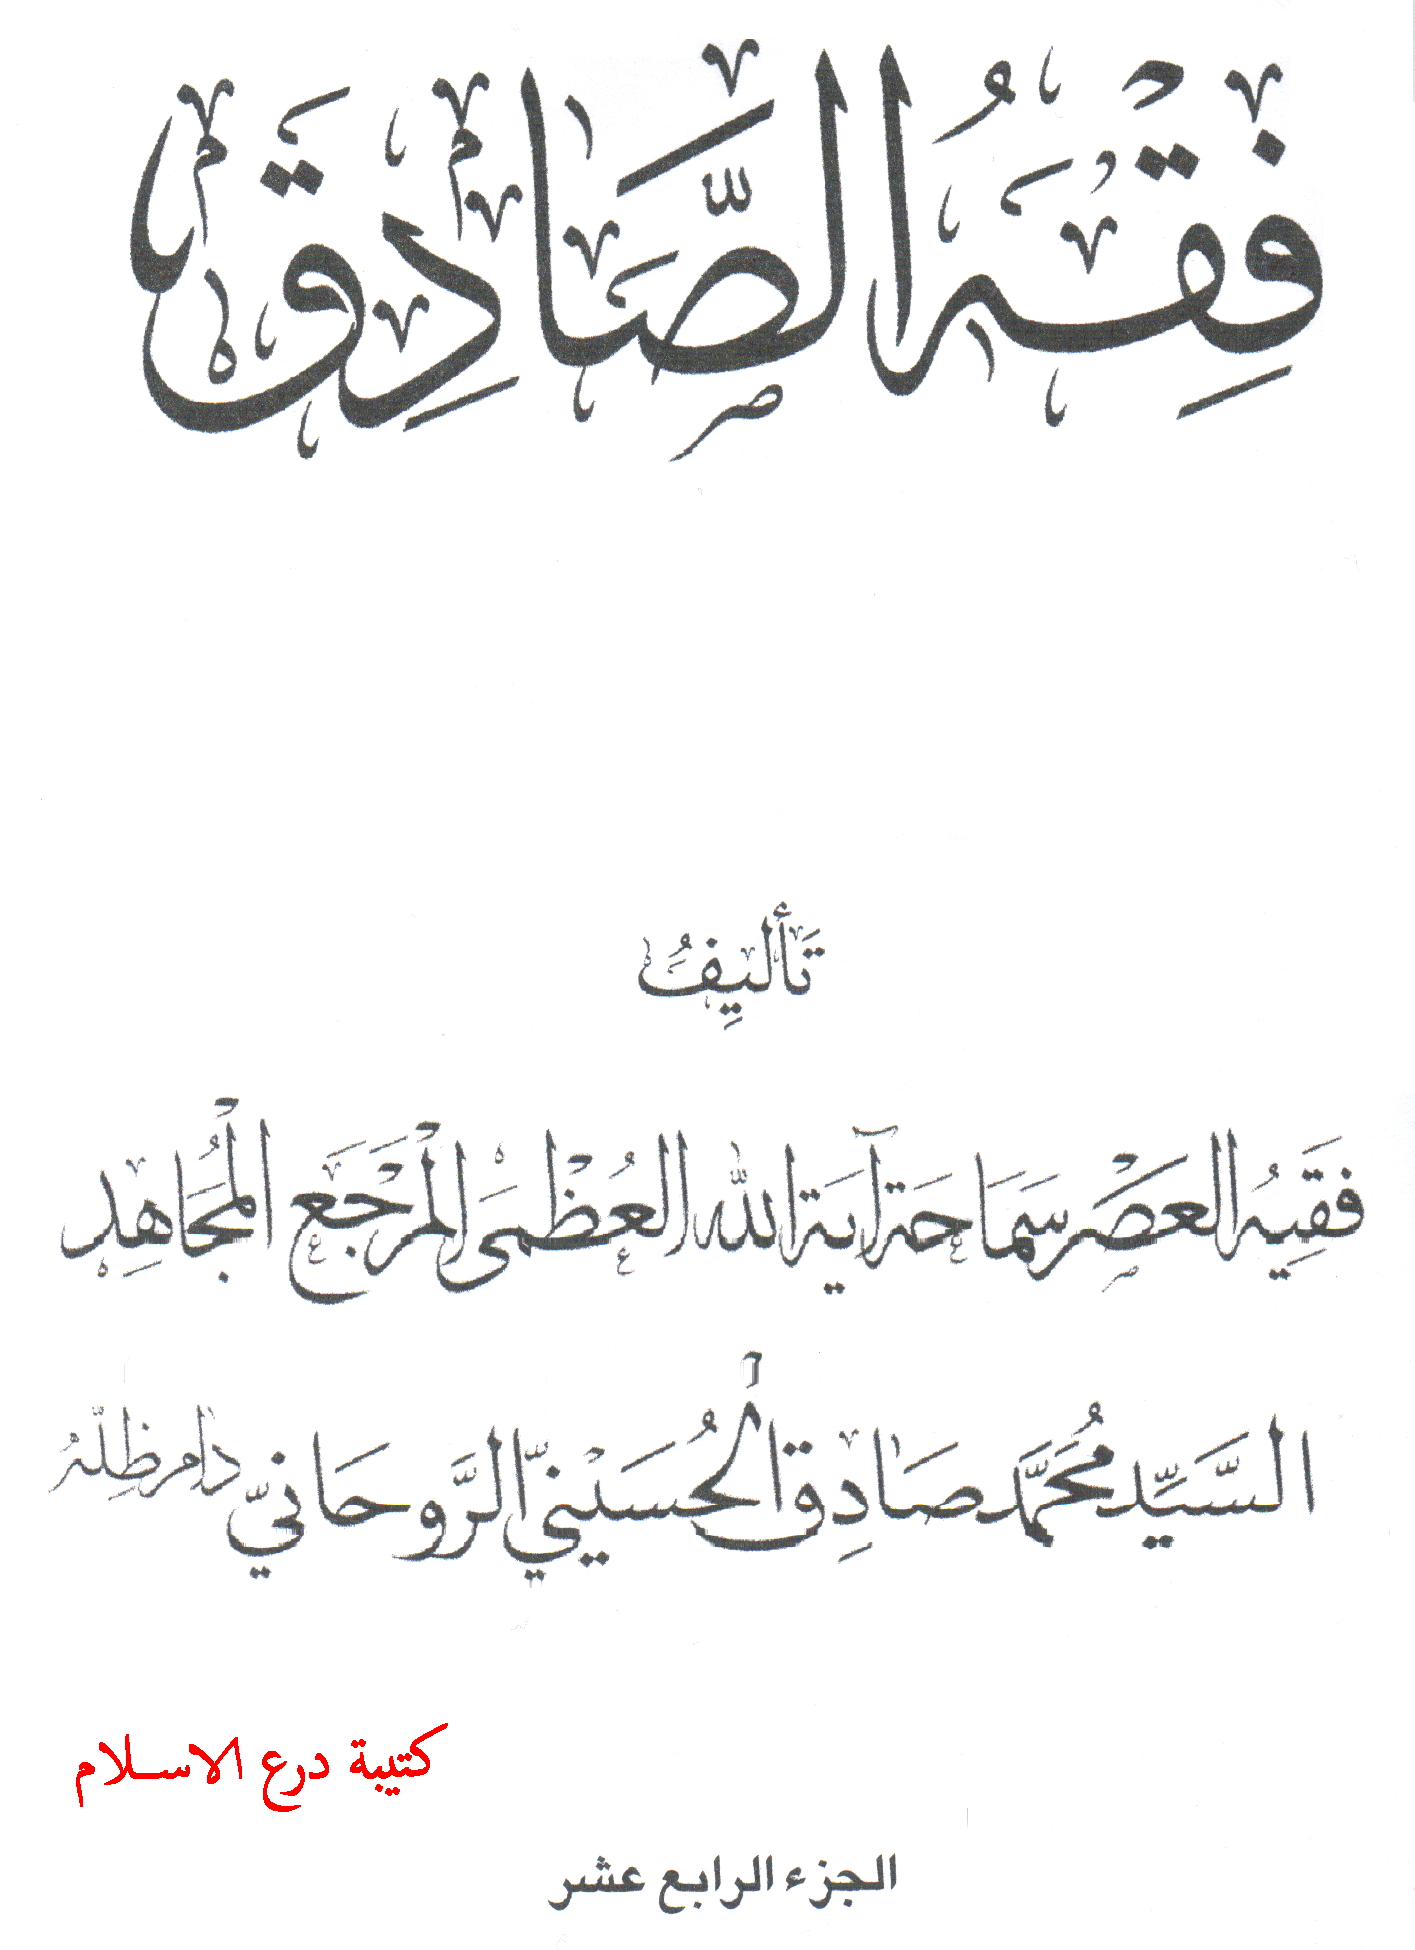 فِقْهُ الصَّادِق
تَأليفُ
فَقِيهُ العَصْرِ سَمَاحَة آيَة الله العُظْمَى المَرْجَع المُجَاهِد
السَّيِّد مُحَمَّد صَادِق الحُسَيْنِيّ الرَّوحَانِيّ دَامَ ظِلّهُ
كتيبة درع الاسلام
الجزء الرابع عشر